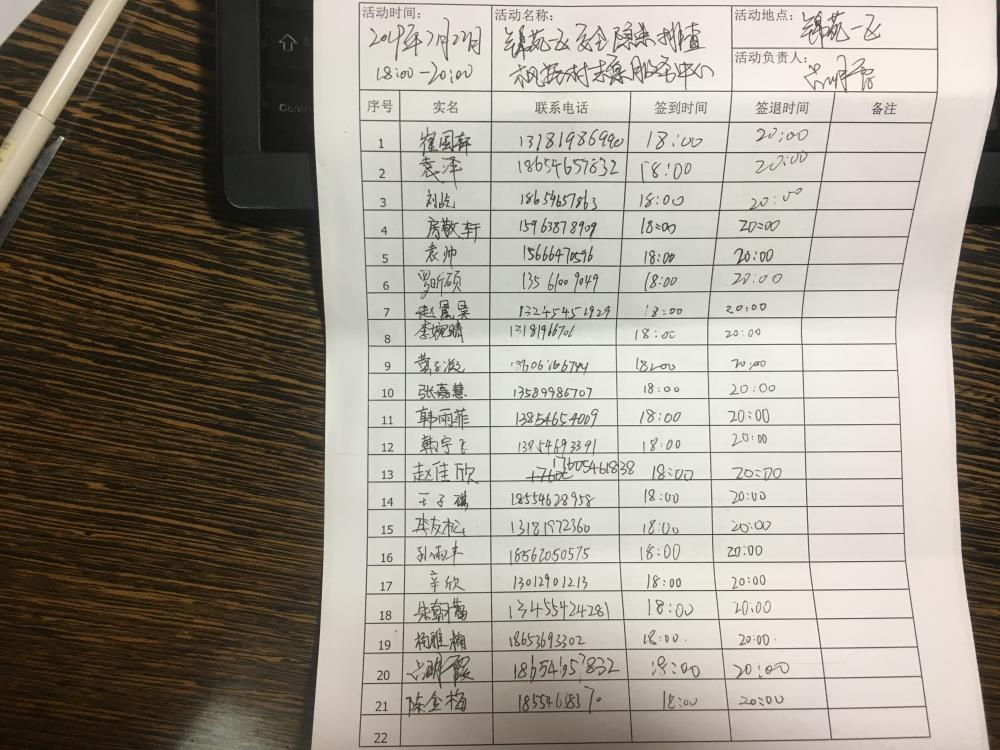 活动时间：
2019年7月27日
18:00-20:00
活动名称：
锦苑一区安全隐患排查
活动地点：锦苑一区
活动负责人：
序号 实名 联系电话 签到时间 签退时间 备注
1 崔国轩 13181986990 18:00 20:00
2 袁泽 18654657832 18:00 20:00
3 刘屹 18654657863 18:00 20:00
4 房敬轩 15963878909 18:00 20:00
5 袁帅 15666470596 18:00 20:00
6 罗昕硕 13561009049 18:00 20:00
7 赵晨昊 13245451929 18:00 20:00
8 李婉晴 1318196670 18:00 20:00
9 18:00 20:00
10 张嘉慧 13589986707 18:00 20:00
11 韩雨菲 13854654009 18:00 20:00
12 韩宇飞 13854693391 18:00 20:00
13 赵佳欣 17605461838 18:00 20:00
14 王子琪 18554628958 18:00 20:00
15 李友松 13181972360 18:00 20:00
16 孙雨丰 18562050575 18:00 20:00
17 辛欣 13012901213 18:00 20:00
18 13455424281 18:00 20:00
19 杨雅楠 18653693302 18:00 20:00
20 18654657832 18:00 20:00
21 陈金梅 18:00 20:00
22